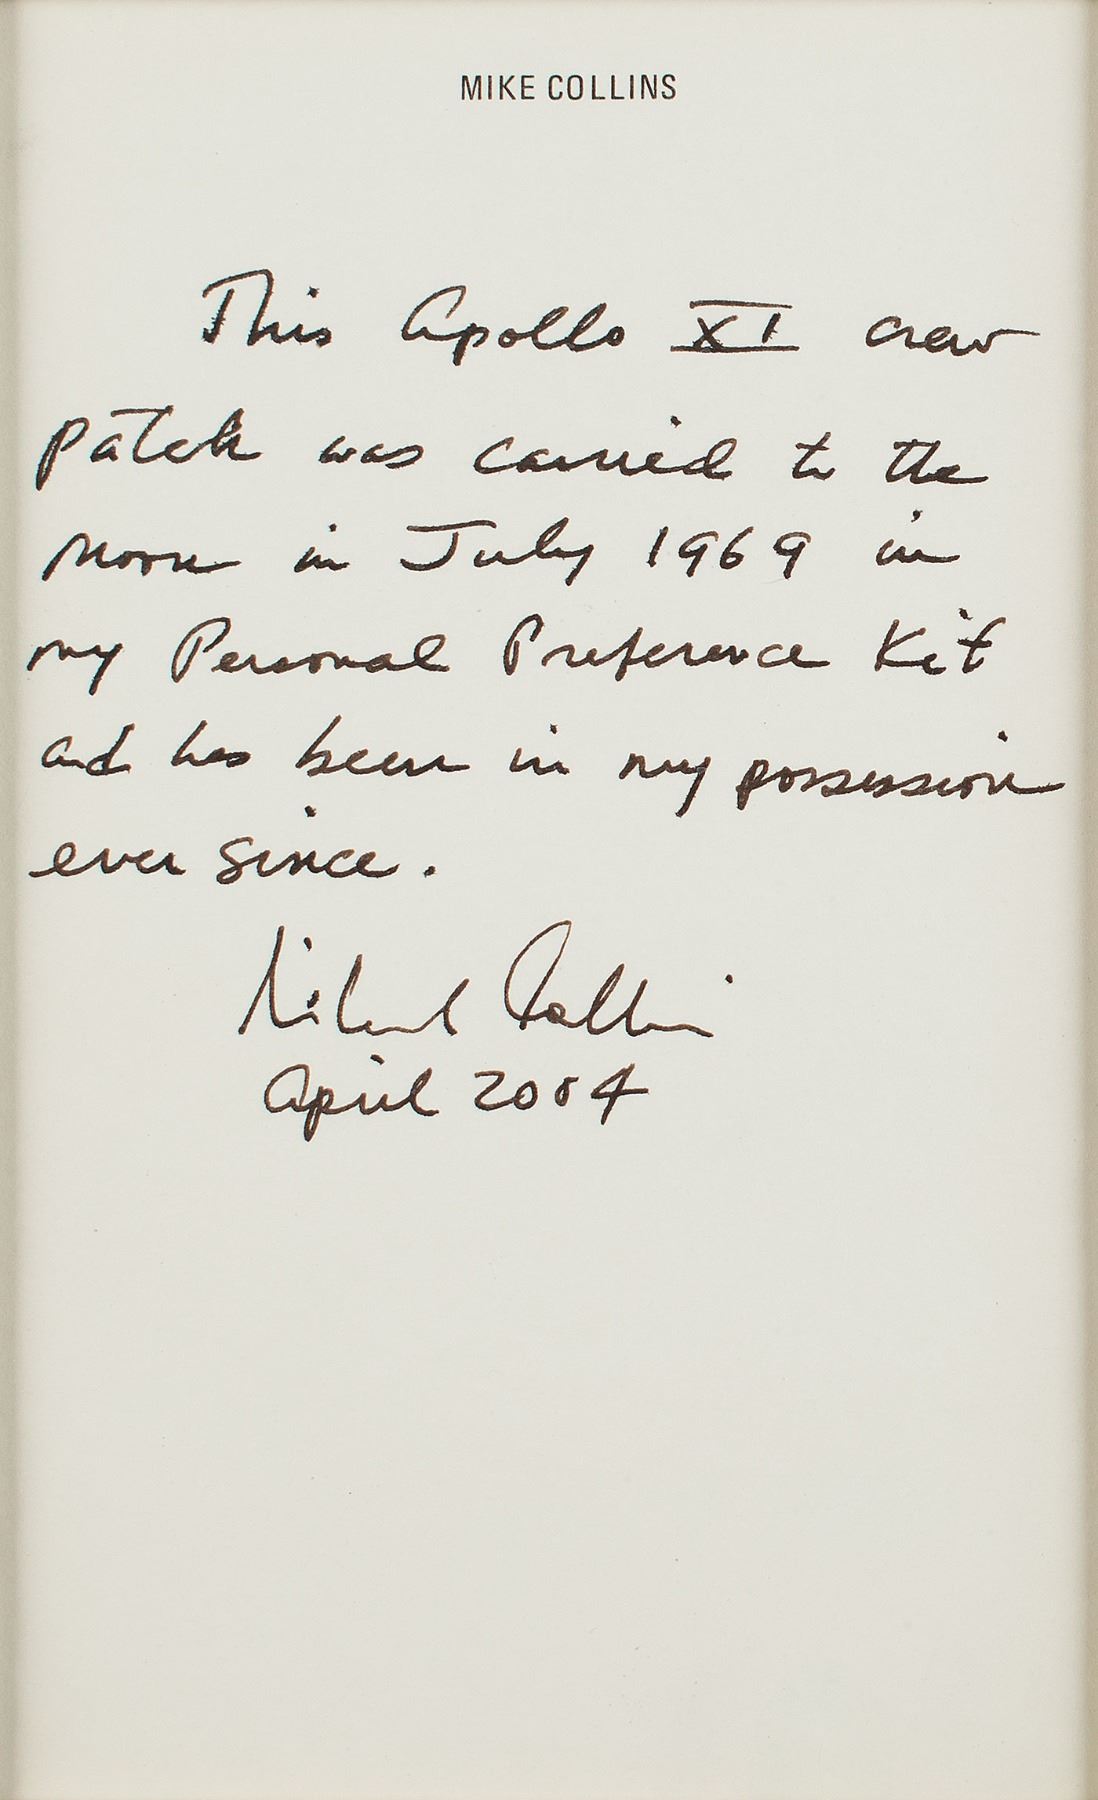 MIKE COLLINS
This Apollo XI crew
patch was carried to the
Moon in July 1969 in
my Personal Preference Kit
and has been in my possession
ever since.
Michael Collins
April 2004